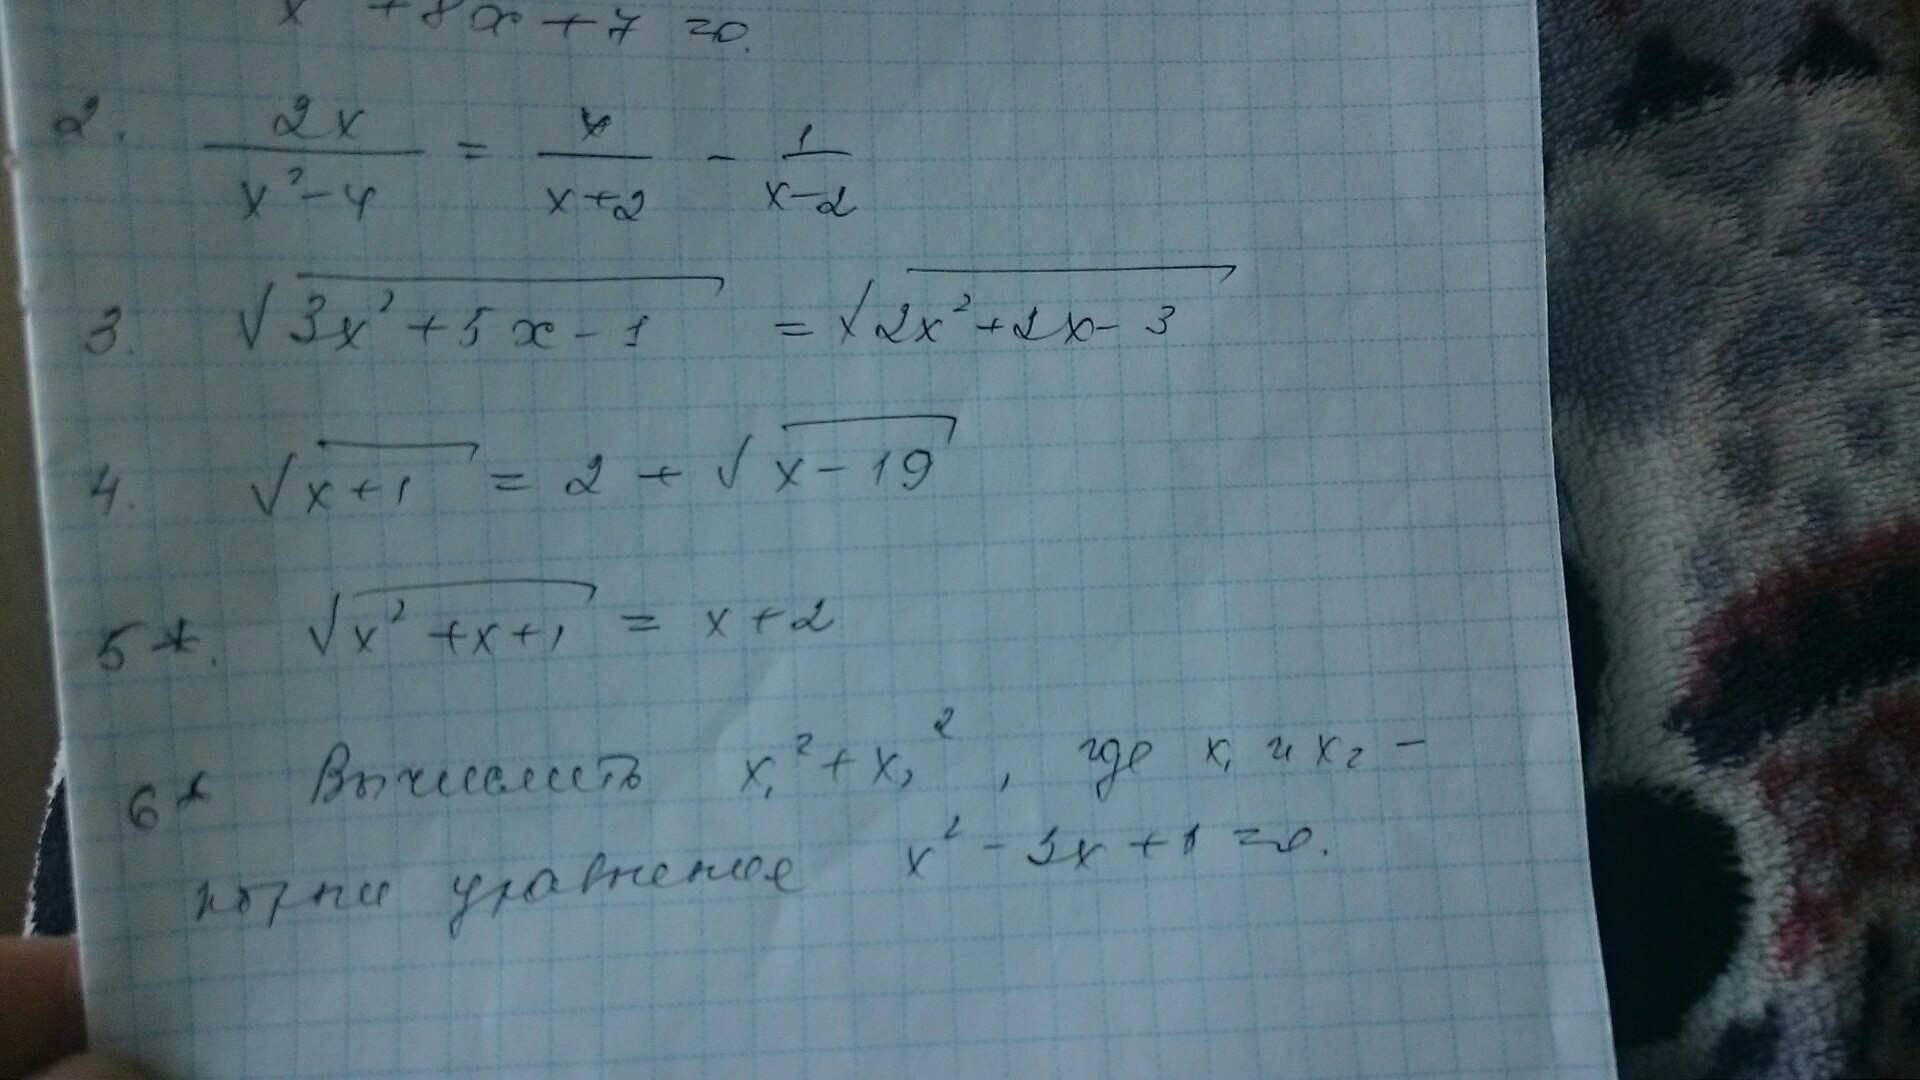 x + 8x + 7 = 0.
2. 2x/(x² - 4) = x/(x + 2) - 1/(x - 2)
3. √(3x² + 5x - 1) = √(2x² + 2x - 3)
4. √(x + 1) = 2 + √(x - 19)
5*. √(x² + x + 1) = x + 2
6* Вычислить x₁² + x₂², где x₁ и x₂ -
корни уравнения x² - 3x + 1 = 0.